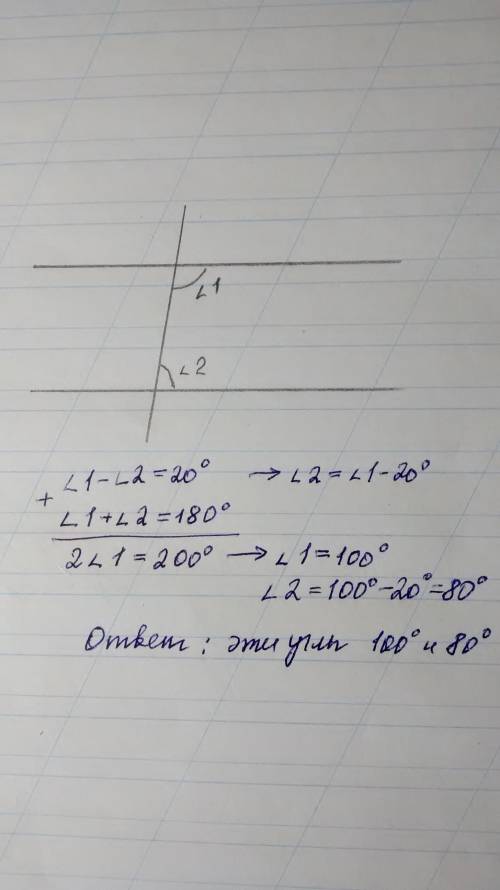 ∠1
∠2
∠1-∠2=20° → ∠2=∠1-20°
+
∠1+∠2=180°
2∠1=200° → ∠1=100°
∠2=100°-20°=80°
Ответ: эти углы 100° и 80°